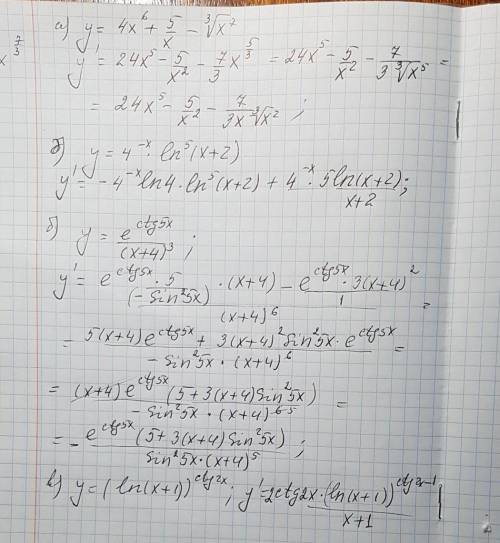 x^(7/3)
а) y = 4x^6 + 5/x - ∛(x^7)
y' = 24x^5 - 5/x^2 - 7/3 x^(5/3) = 24x^5 - 5/x^2 - 7/(3∛(x^5)) =
= 24x^5 - 5/x^2 - 7/(3x∛(x^2)) ;
б) y = 4^(-x) · ln^5(x+2)
y' = -4^(-x) ln4 · ln^5(x+2) + 4^(-x) · 5ln(x+2)/(x+2) ;
б) y = e^(ctg5x)/(x+4)^3 ;
y' = (e^(ctg5x) · 5/(-Sin^2 5x) · (x+4) - e^(ctg5x) · 3(x+4)^2/1)/(x+4)^6 =
= (5(x+4)e^(ctg5x) + 3(x+4)^2 Sin^2 5x · e^(ctg5x))/(-Sin^2 5x · (x+4)^6) =
= (x+4)e^(ctg5x) (5+3(x+4)Sin^2 5x)/(-Sin^2 5x · (x+4)^(6 5)) =
= - e^(ctg5x) (5+3(x+4)Sin^2 5x)/(Sin^2 5x · (x+4)^5) ;
в) y = (ln(x+1))^(ctg2x) ; y' = 2ctg2x · (ln(x+1))^(ctg2x-1)/(x+1)